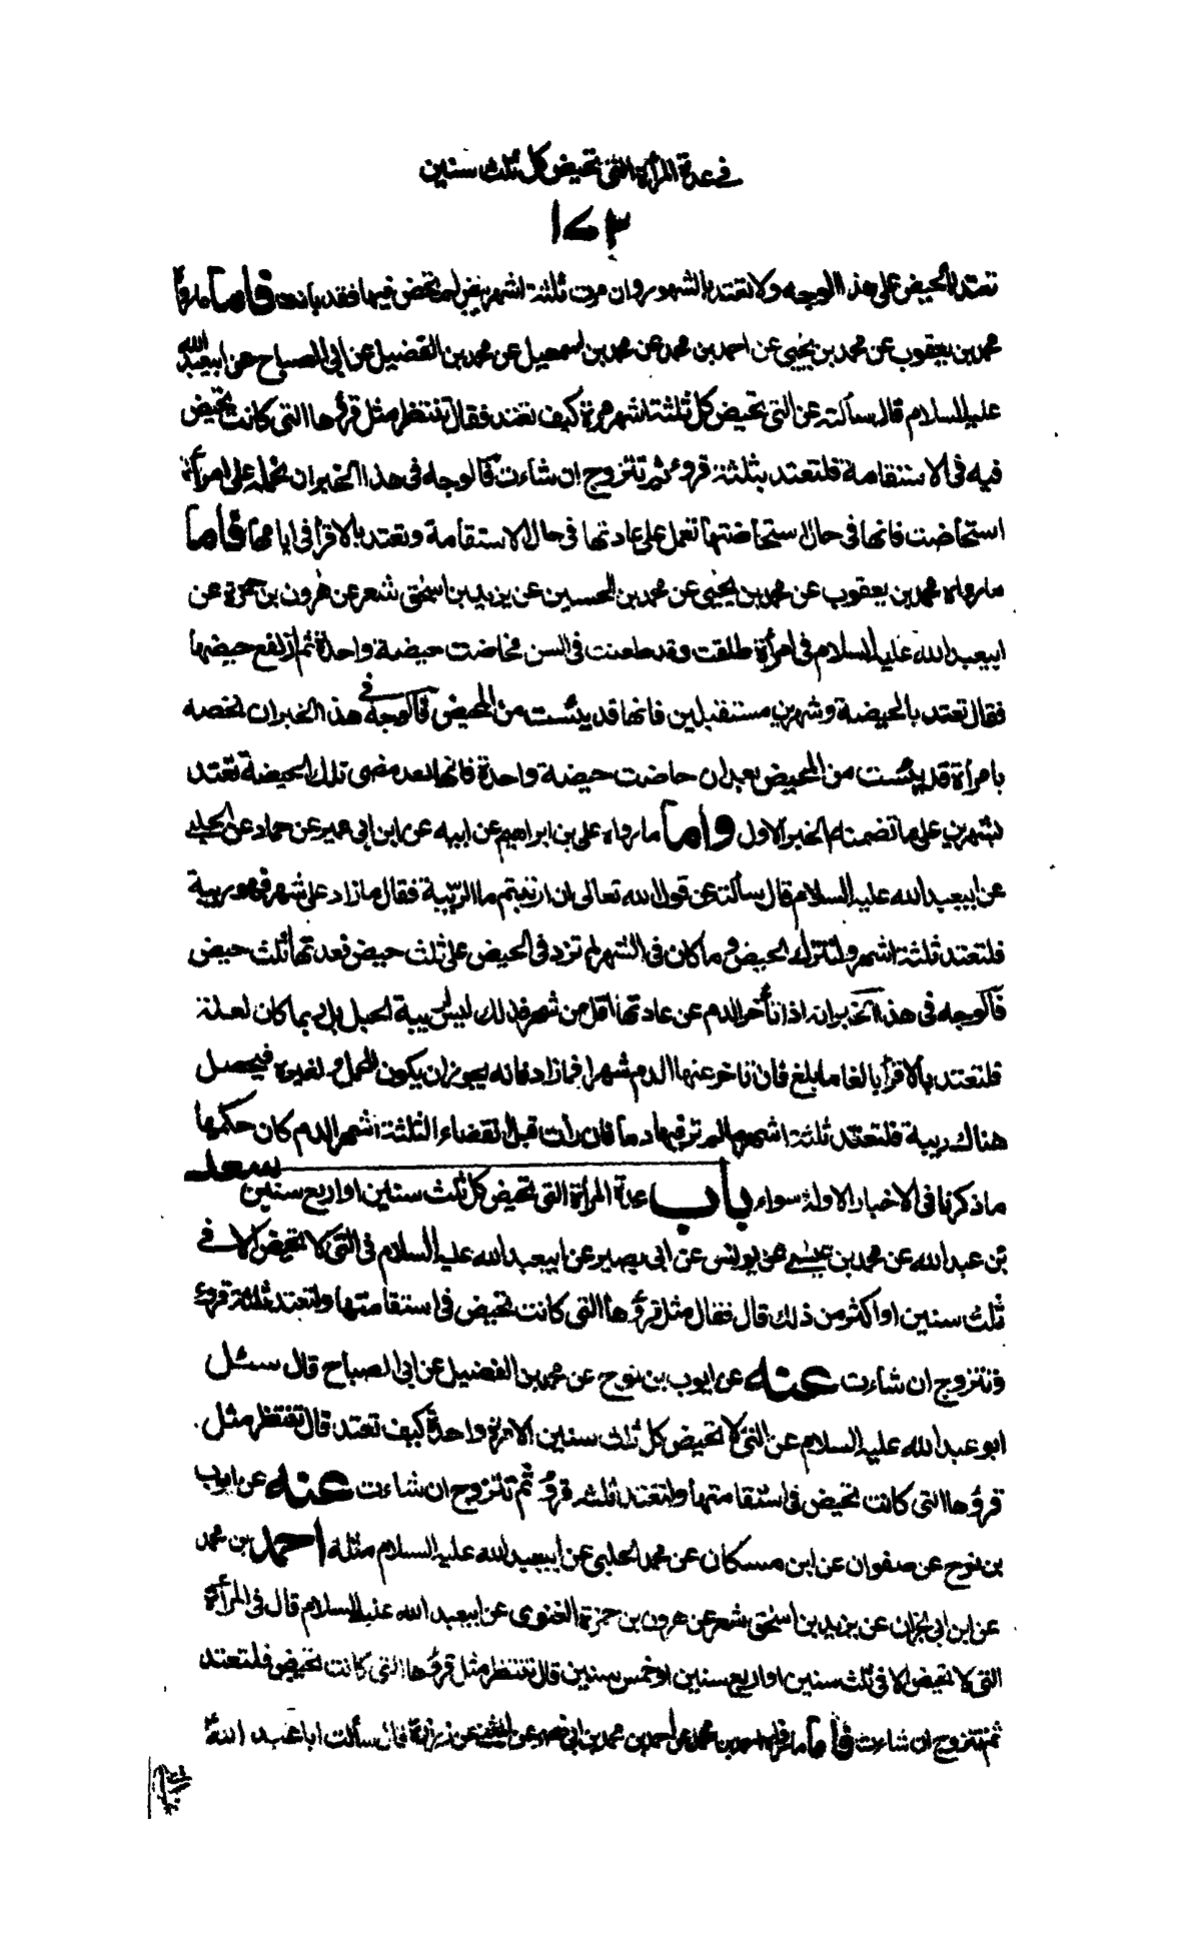 في عدة المرأة التي تحيض كل ثلث سنين
١٧٣
تعتد بالحيض على هذا الوجه ولا تعتد بالشهور وان مرت ثلثة اشهر بيض لم تحض فيها فقد بانت فاما ما رواه
محمد بن يعقوب عن محمد بن يحيى عن احمد بن محمد عن محمد بن اسمعيل عن محمد بن الفضيل عن ابي الصباح عن ابيعبد الله
عليه السلام قال سألته عن التي تحيض كل ثلثة اشهر مرة كيف تعتد فقال تنتظر مثل قرؤها التي كانت تحيض
فيه في الاستقامة فلتعتد بثلثة قروء ثم تتزوج ان شاءت فالوجه في هذا الخبر ان نحمله على امرأة
استحاضت فانها في حال استحاضتها تعمل على عادتها في حال الاستقامة وتعتد بالاقرأ في ايامها فاما
ما رواه محمد بن يعقوب عن محمد بن يحيى عن محمد بن الحسين عن يزيد بن اسحق شعر عن هرون بن حمزة عن
ابيعبد الله عليه السلام في امرأة طلقت وقد طعنت في السن فحاضت حيضة واحدة ثم ارتفع حيضها
فقال تعتد بالحيضة وشهرين مستقبلين فانها قد يئست من المحيض فالوجه في هذا الخبر ان نخصه
بامرأة قد يئست من المحيض بعد ان حاضت حيضة واحدة فانها بعد مضى تلك الحيضة تعتد
بشهرين على ما تضمنه الخبر الاول واما ما رواه علي بن ابراهيم عن ابيه عن ابن ابي عمير عن حماد عن الحلبي
عن ابيعبد الله عليه السلام قال سألته عن قول الله تعالى ان ارتبتم ما الريبة فقال ما زاد على شهر فهو ريبة
فلتعتد ثلثة اشهر ولتترك الحيض وما كان في الشهر لم تزد في الحيض على ثلث حيض فعدتها ثلث حيض
فالوجه في هذا الخبر انه اذا تأخر الدم عن عادتها اقل من شهر فذلك ليس لريبة الحبل بل ربما كان لعلة
فلتعتد بالاقرأ بالغا ما بلغ فان تاخر عنها الدم شهرا فما زاد فانه يجوز ان يكون للحمل ولغيره فيحصل
هناك ريبة فلتعتد ثلثة اشهر ما لم تر فيها دما فان رأت قبل انقضاء الثلثة اشهر الدم كان حكمها
ما ذكرناه في الاخبار الاولة سواء باب عدة المرأة التي تحيض كل ثلث سنين او اربع سنين سعد
بن عبد الله عن محمد بن عيسى عن يونس عن ابي بصير عن ابيعبد الله عليه السلام في التي لا تحيض الا في
ثلث سنين او اكثر من ذلك قال فقال مثل قرؤها التي كانت تحيض في استقامتها ولتعتد ثلثة قروء
وتتزوج ان شاءت عنه عن ايوب بن نوح عن محمد بن الفضيل عن ابي الصباح قال سئل
ابو عبد الله عليه السلام عن التي لا تحيض كل ثلث سنين الا مرة واحدة كيف تعتد قال تنتظر مثل
قرؤها التي كانت تحيض في استقامتها ولتعتد ثلثه قروء ثم تتزوج ان شاءت عنه عن ايوب
بن نوح عن صفوان عن ابن مسكان عن محمد الحلبي عن ابيعبد الله عليه السلام مثله احمد بن محمد
عن ابن ابي نجران عن يزيد بن اسحق شعر عن هرون بن حمزة الغنوى عن ابيعبد الله عليه السلام قال في المرأة
التي لا تحيض الا في ثلث سنين او اربع سنين او خمس سنين قال تنتظر مثل قرؤها التي كانت تحيض فلتعتد
ثم تتزوج ان شاءت فاما ما رواه احمد بن محمد عن احمد بن محمد بن ابي نصر عن عن زرارة قال سألت ابا عبد الله